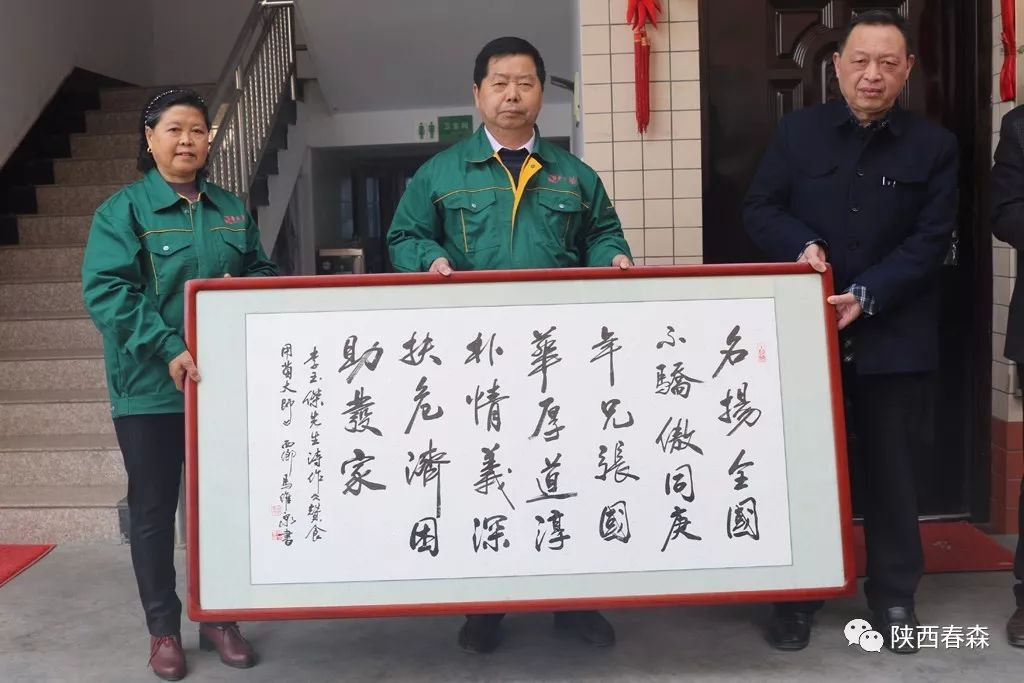 卫生间
名揚全國
不驕傲同庚
年兄張國
華厚道淳
朴情義深
扶危濟困
助發家
李玉傑先生诗作 賛食
用菌大師 西鄉 馬 書
陕西春森